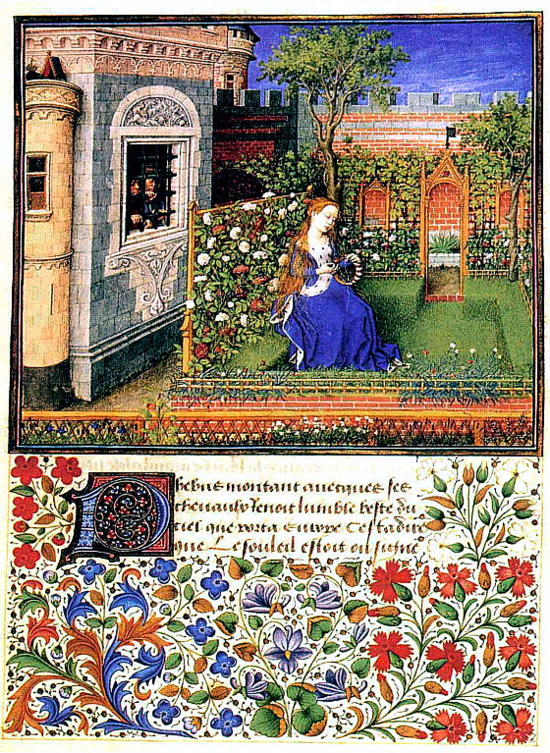 Phebus montant auecques ses
cheuaulx tenoit lumble beste du
ciel que porta Europe Cestadire
que Le souleil estoit ou signe